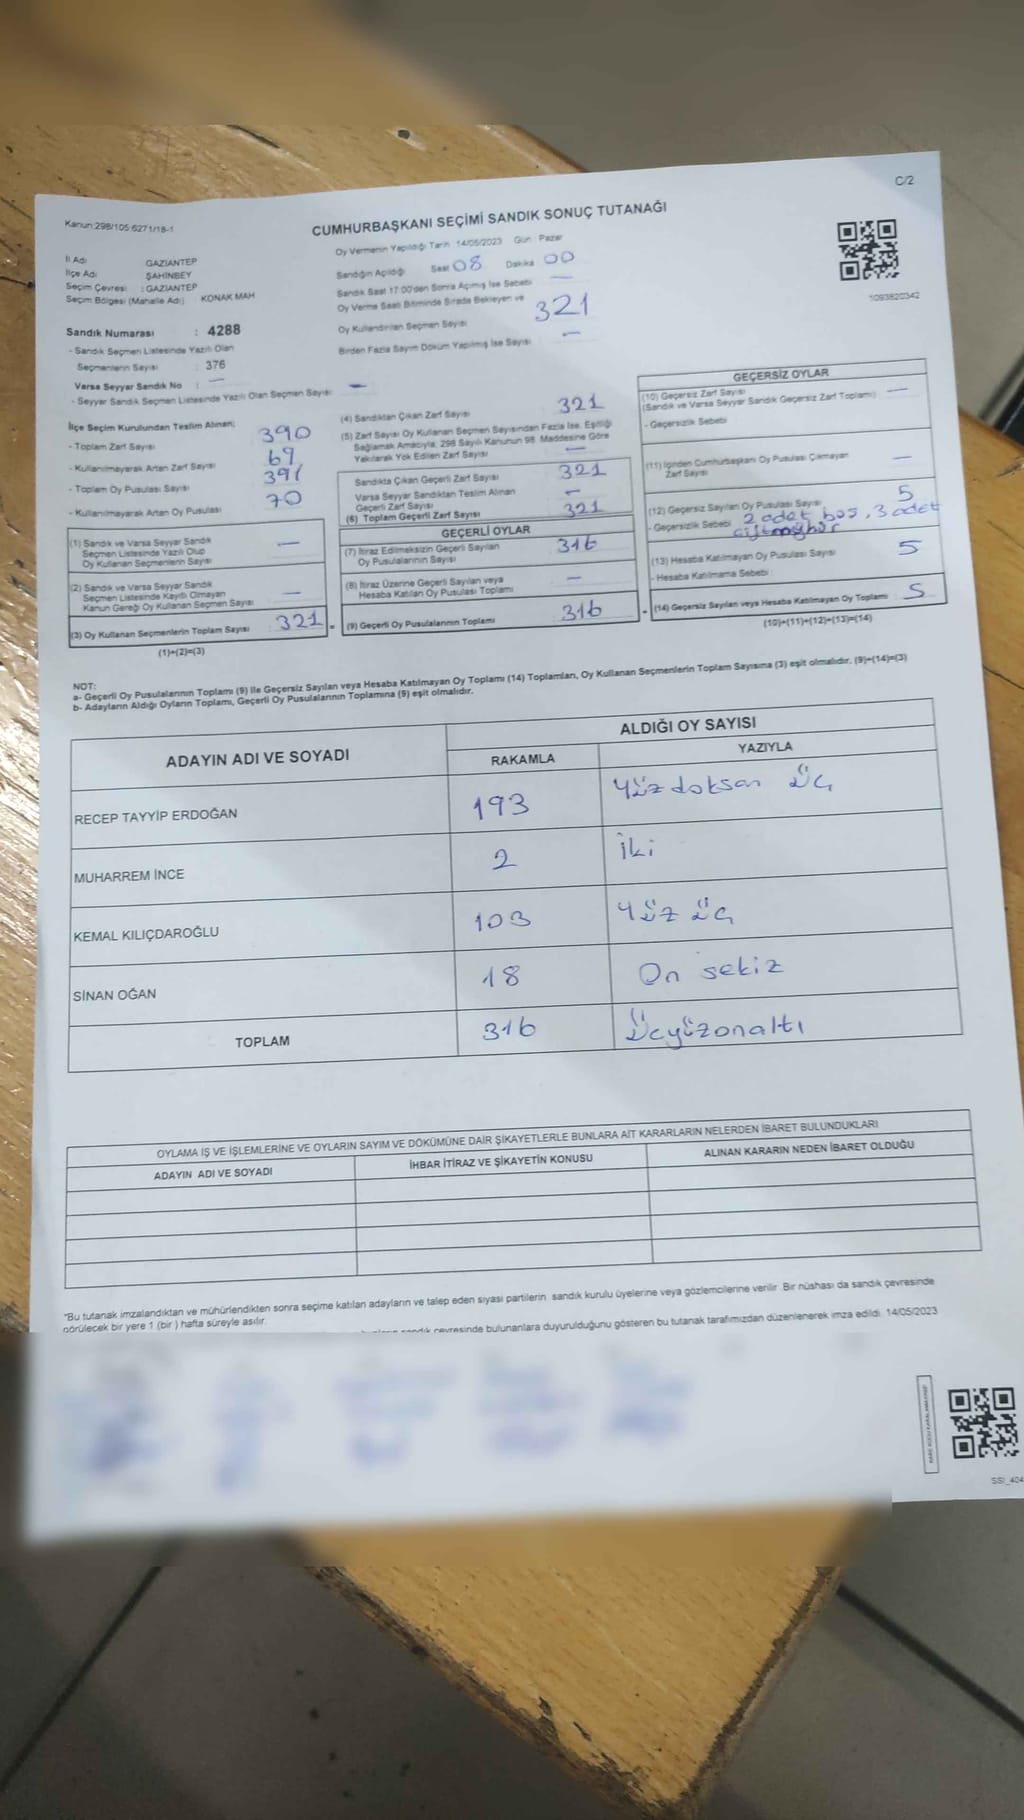 C/2
Kanun:298/105 6271/18-1
CUMHURBAŞKANI SEÇİMİ SANDIK SONUÇ TUTANAĞI
Oy Vermenin Yapıldığı Tarih 14/05/2023 Gün: Pazar
İl Adı : GAZIANTEP
İlçe Adı ŞAHİNBEY
Seçim Çevresi : GAZIANTEP
Seçim Bölgesi (Mahalle Adı) KONAK MAH
Sandığın Açıldığı Saat 08 Dakika 00
Sandık Saat 17:00'den Sonra Açılmış İse Sebebi —
Oy Verme Saati Bitiminde Sırada Bekleyen ve
Oy Kullandırılan Seçmen Sayısı 321
Birden Fazla Sayım Döküm Yapılmış İse Sayısı —
1093820342
Sandık Numarası : 4288
- Sandık Seçmen Listesinde Yazılı Olan
Seçmenlerin Sayısı : 376
Varsa Seyyar Sandık No : —
- Seyyar Sandık Seçmen Listesinde Yazılı Olan Seçmen Sayısı: —
İlçe Seçim Kurulundan Teslim Alınan;
- Toplam Zarf Sayısı 390
- Kullanılmayarak Artan Zarf Sayısı 69
- Toplam Oy Pusulası Sayısı 391
- Kullanılmayarak Artan Oy Pusulası 70
(1) Sandık ve Varsa Seyyar Sandık
Seçmen Listesinde Yazılı Olup
Oy Kullanan Seçmenlerin Sayısı —
(2) Sandık ve Varsa Seyyar Sandık
Seçmen Listesinde Kayıtlı Olmayan
Kanun Gereği Oy Kullanan Seçmen Sayısı —
(3) Oy Kullanan Seçmenlerin Toplam Sayısı : 321 =
(1)+(2)=(3)
(4) Sandıktan Çıkan Zarf Sayısı 321
(5) Zarf Sayısı Oy Kullanan Seçmen Sayısından Fazla İse, Eşitliği
Sağlamak Amacıyla, 298 Sayılı Kanunun 98. Maddesine Göre
Yakılarak Yok Edilen Zarf Sayısı —
Sandıkta Çıkan Geçerli Zarf Sayısı 321
Varsa Seyyar Sandıktan Teslim Alınan
Geçerli Zarf Sayısı —
(6) Toplam Geçerli Zarf Sayısı 321
GEÇERLİ OYLAR
(7) İtiraz Edilmeksizin Geçerli Sayılan
Oy Pusulalarının Sayısı 316
(8) İtiraz Üzerine Geçerli Sayılan veya
Hesaba Katılan Oy Pusulası Toplamı —
(9) Geçerli Oy Pusulalarının Toplamı : 316 +
GEÇERSİZ OYLAR
(10) Geçersiz Zarf Sayısı
(Sandık ve Varsa Seyyar Sandık Geçersiz Zarf Toplamı) —
- Geçersizlik Sebebi
(11) İçinden Cumhurbaşkanı Oy Pusulası Çıkmayan
Zarf Sayısı —
(12) Geçersiz Sayılan Oy Pusulası Sayısı 5
- Geçersizlik Sebebi 2 adet boş, 3 adet
çift mühür
(13) Hesaba Katılmayan Oy Pusulası Sayısı 5
- Hesaba Katılmama Sebebi :
(14) Geçersiz Sayılan veya Hesaba Katılmayan Oy Toplamı : 5
(10)+(11)+(12)+(13)=(14)
NOT:
a- Geçerli Oy Pusulalarının Toplamı (9) ile Geçersiz Sayılan veya Hesaba Katılmayan Oy Toplamı (14) Toplamları, Oy Kullanan Seçmenlerin Toplam Sayısına (3) eşit olmalıdır. (9)+(14)=(3)
b- Adayların Aldığı Oyların Toplamı, Geçerli Oy Pusulalarının Toplamına (9) eşit olmalıdır.
ADAYIN ADI VE SOYADI ALDIĞI OY SAYISI
RAKAMLA YAZIYLA
RECEP TAYYİP ERDOĞAN 193 Yüz doksan üç
MUHARREM İNCE 2 İki
KEMAL KILIÇDAROĞLU 103 Yüz üç
SİNAN OĞAN 18 On sekiz
TOPLAM 316 Üçyüzonaltı
OYLAMA İŞ VE İŞLEMLERİNE VE OYLARIN SAYIM VE DÖKÜMÜNE DAİR ŞİKAYETLERLE BUNLARA AİT KARARLARIN NELERDEN İBARET BULUNDUKLARI
ADAYIN ADI VE SOYADI İHBAR İTİRAZ VE ŞİKAYETİN KONUSU ALINAN KARARIN NEDEN İBARET OLDUĞU
*Bu tutanak imzalandıktan ve mühürlendikten sonra seçime katılan adayların ve talep eden siyasi partilerin sandık kurulu üyelerine veya gözlemcilerine verilir. Bir nüshası da sandık çevresinde
görülecek bir yere 1 (bir) hafta süreyle asılır.
sandık çevresinde bulunanlara duyurulduğunu gösteren bu tutanak tarafımızdan düzenlenerek imza edildi. 14/05/2023
SSI_404